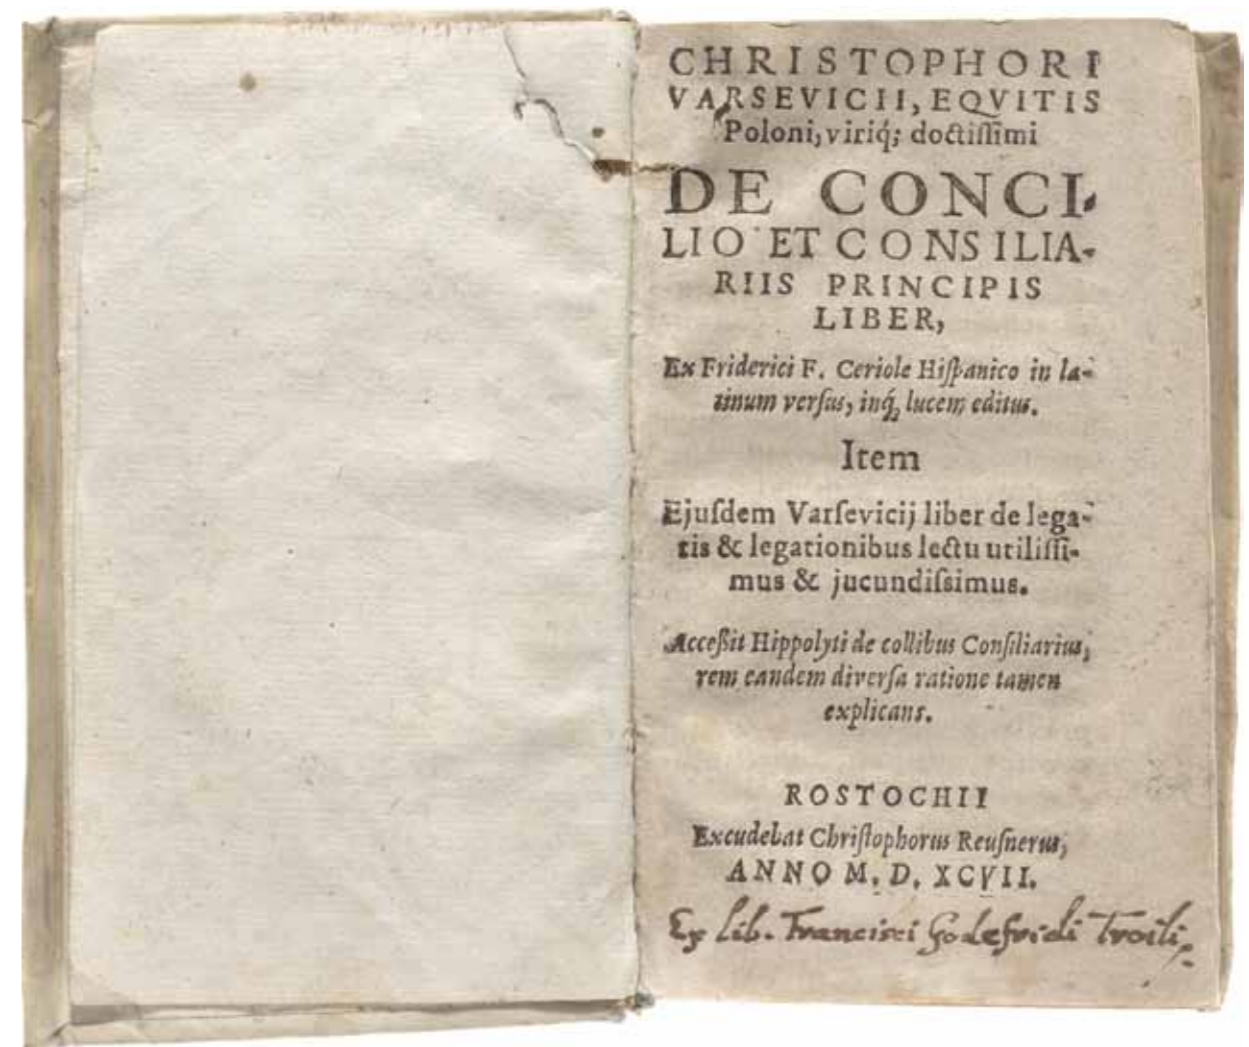 CHRISTOPHORI
VARSEVICII, EQVITIS
Poloni, viriq́; doctiſſimi
DE CONCI-
LIO ET CONSILIA-
RIIS PRINCIPIS
LIBER,
Ex Friderici F. Ceriole Hiſpanico in la-
tinum verſus, inq́, lucem editus.
Item
Ejuſdem Varſevicij liber de lega-
tis & legationibus lectu utiliſſi-
mus & jucundiſsimus.
Acceßit Hippolyti de collibus Conſiliarius,
rem eandem diverſa ratione tamen
explicans.
ROSTOCHII
Excudebat Chriſtophorus Reuſnerus,
ANNO M. D. XCVII.
Ex lib. Francisci Godefridi Troili